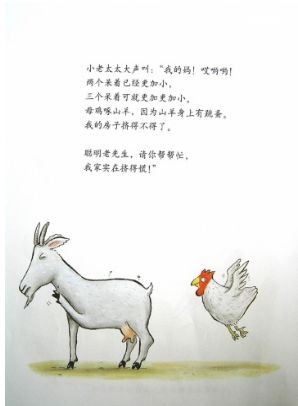 小老太太大声叫：“我的妈！哎哟哟！
两个呆着已经更加小，
三个呆着可就更加更加小。
母鸡啄山羊，因为山羊身上有跳蚤。
我的房子挤得不得了。
聪明老先生，请你帮帮忙，
我家实在挤得慌！”